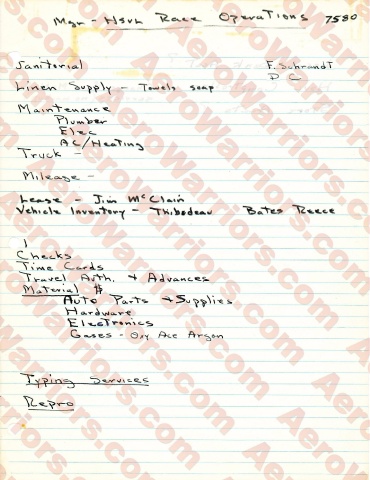 Mgr - Hsvl Race Operations 7580
Janitorial F. Schrandt
D C
Linen Supply - Towels soap
Maintenance
Plumber
Elec
AC/Heating
Truck -
Mileage -
Lease - Jim McClain
Vehicle Inventory - Thibodeau Bates Reece
1
Checks
Time Cards
Travel Auth. & Advances
Material $
Auto Parts & Supplies
Hardware
Electronics
Gases - Oxy Ace Argon
Typing Services
Repro
AeroWarriors.com